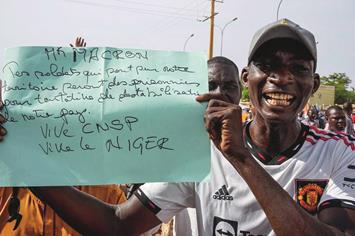 Mr MACRON
Les soldats qui sont sur notre
territoire seront des prisonniers
pour tentative de destabilisation
de notre pay.
VIVE CNSP
Vive le NIGER